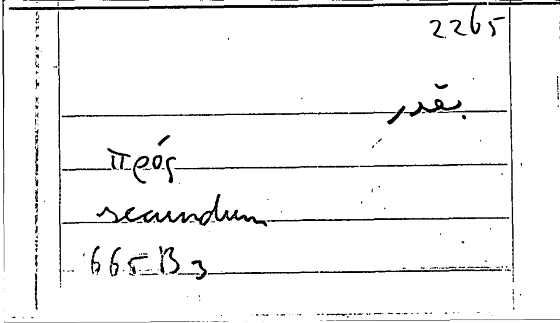 2265
بقدر
πρός
secundum
665 B 3